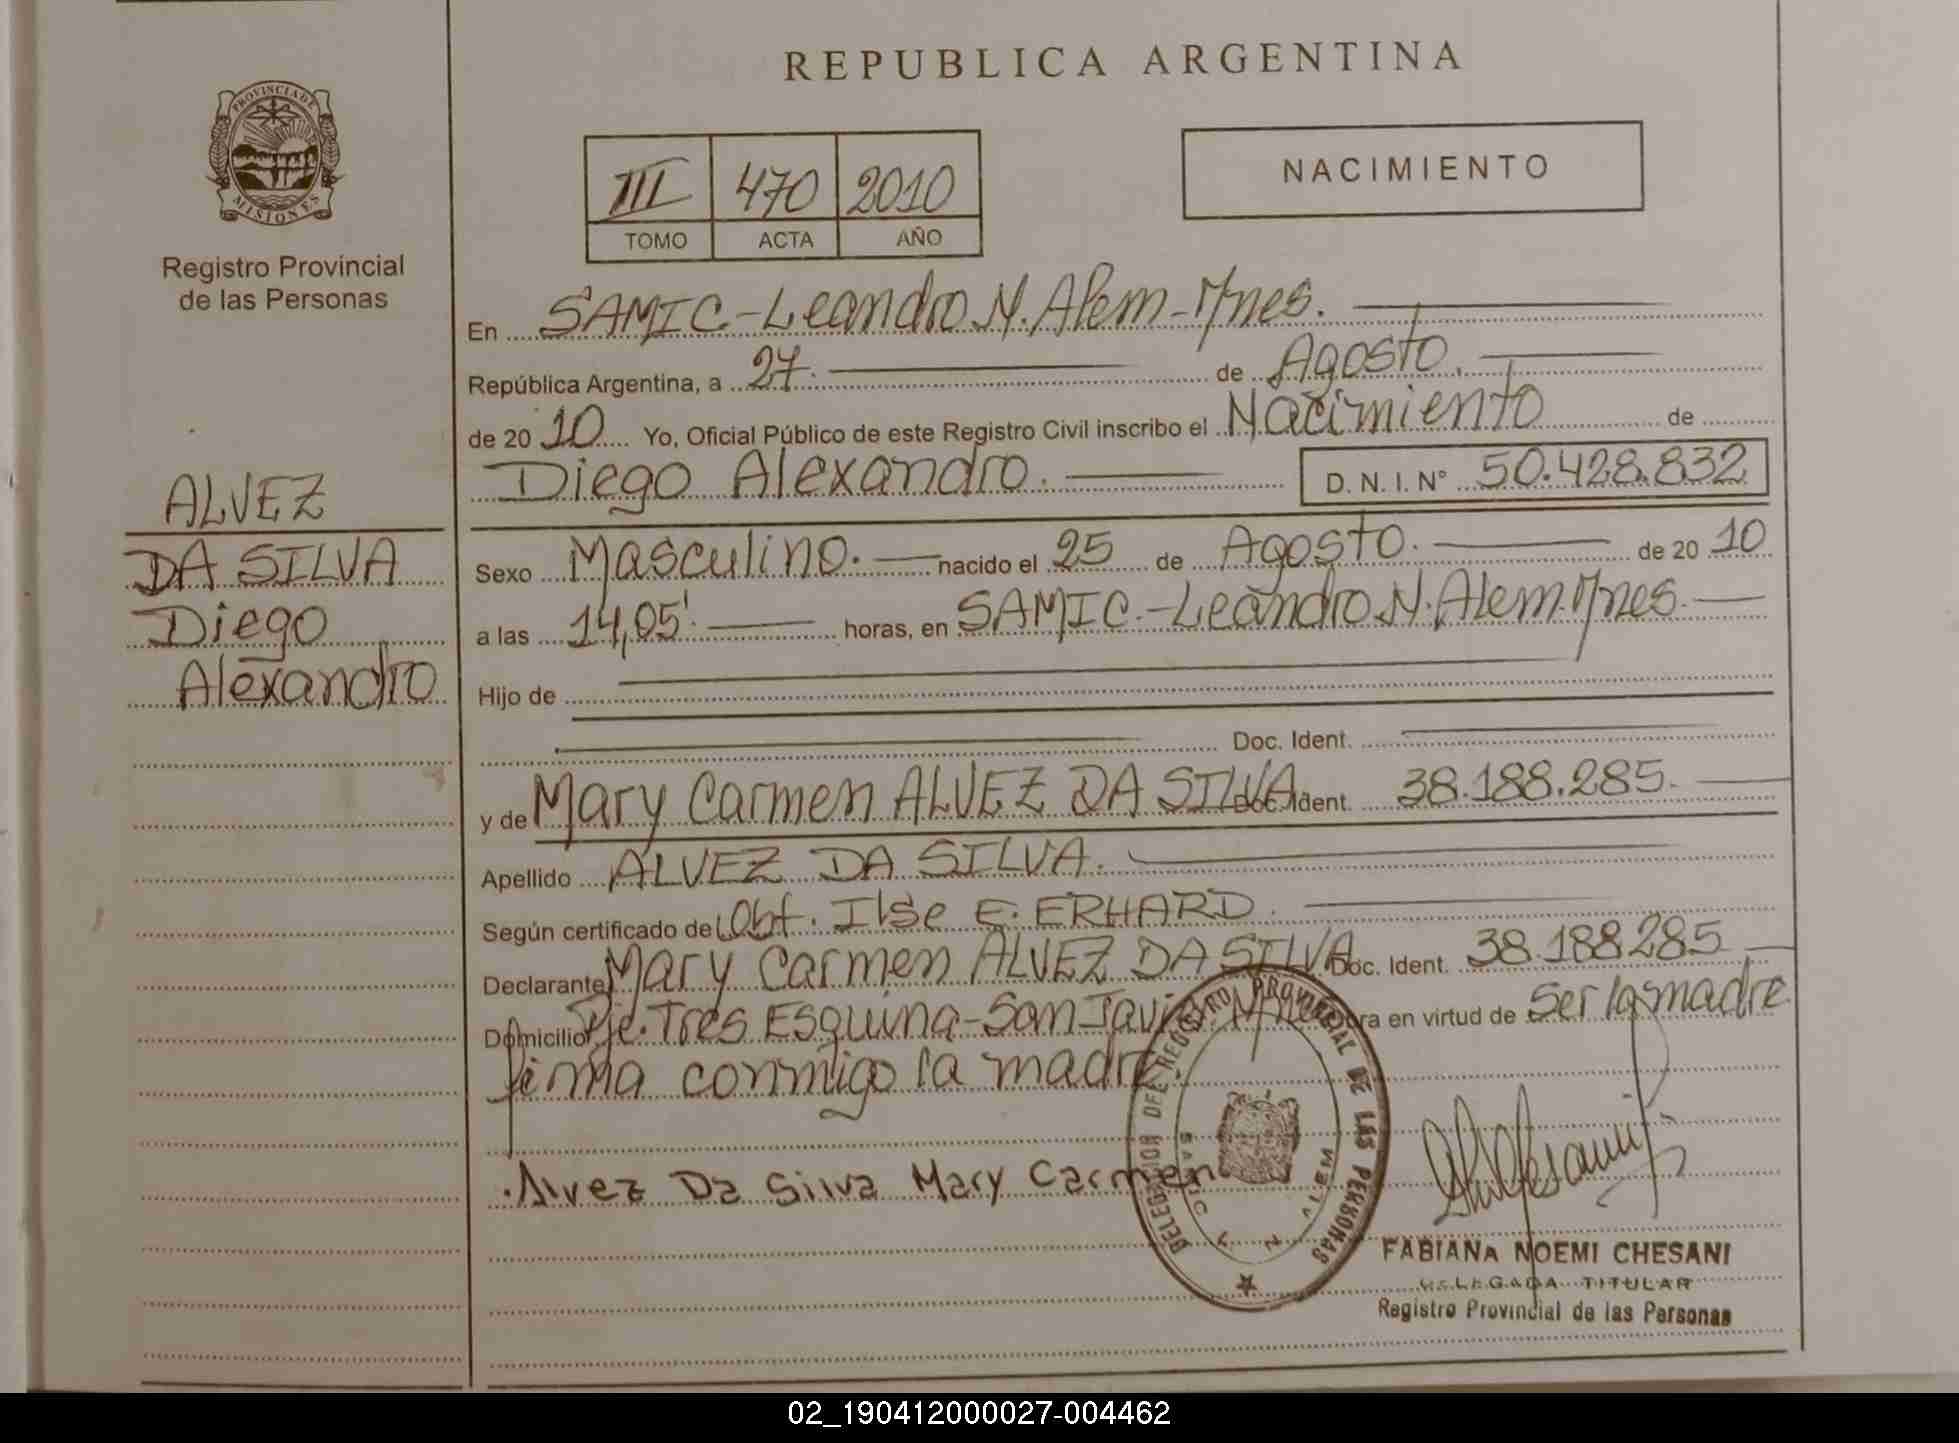 REPUBLICA ARGENTINA
PROVINCIA DE
MISIONES
Registro Provincial
de las Personas
III 470 2010
TOMO ACTA AÑO
NACIMIENTO
En SAMIC.-Leandro N. Alem-Mnes.
República Argentina, a 27. de Agosto.
de 2010 Yo, Oficial Público de este Registro Civil inscribo el Nacimiento de
Diego Alexandro. D.N.I. Nº 50.428.832
ALVEZ
DA SILVA
Diego
Alexandro
Sexo Masculino. nacido el 25 de Agosto. de 2010
a las 14,05'. horas, en SAMIC.-Leandro N. Alem.Mnes.
Hijo de
Doc. Ident.
y de Mary Carmen ALVEZ DA SILVA Doc. Ident. 38.188.285.
Apellido ALVEZ DA SILVA.
Según certificado de Obt. Ilse E. ERHARD.
Declarante Mary Carmen ALVEZ DA SILVA Doc. Ident. 38.188.285
Domicilio Pje. Tres Esquina-San Javier. en virtud de Ser la madre.
firma conmigo la madre.
Alvez Da Silva Mary Carmen
DELEGACION DEL REGISTRO PROVINCIAL DE LAS PERSONAS
SAMIC L. N. ALEM
FABIANA NOEMI CHESANI
DELEGADA TITULAR
Registro Provincial de las Personas
02_190412000027-004462